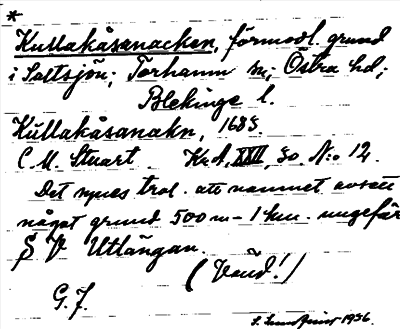 *
Kullakåsanacken, förmodl. grund
i Saltsjön; Torhamn sn; Östra hd;
Blekinge l.
Kullakåsanakn, 1683.
C. M. Stuart. Kr.A. XXII, 30. N:o 12.
Det synes trol. att namnet avsett
något grund 500 m - 1 km. ungefär
S V Utlängan.
(Vänd!)
G. J.
1936.